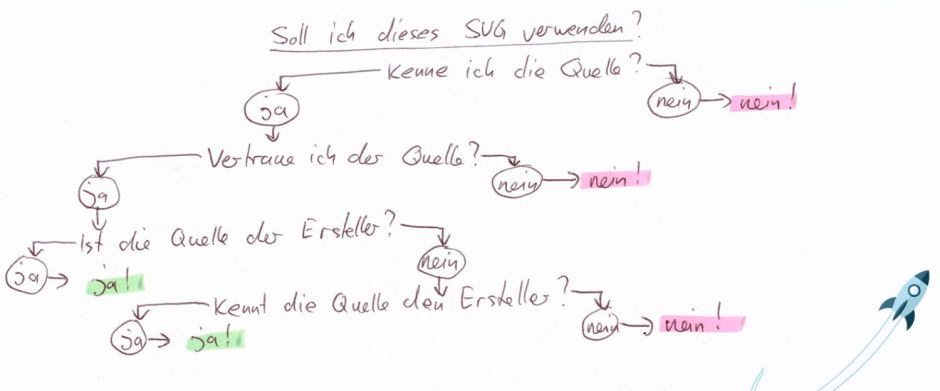 Soll ich dieses SVG verwenden?
Kenne ich die Quelle?
ja nein nein!
Vertraue ich der Quelle?
ja nein nein!
Ist die Quelle der Ersteller?
ja ja! nein
Kennt die Quelle den Ersteller?
ja ja! nein nein!